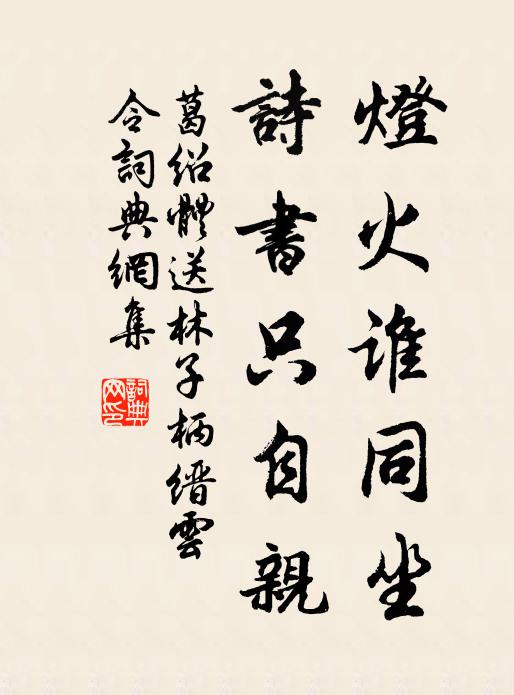 燈火誰同坐
詩書只自親
葛紹體送林子柄縉雲
令詞典網集
詞典网印